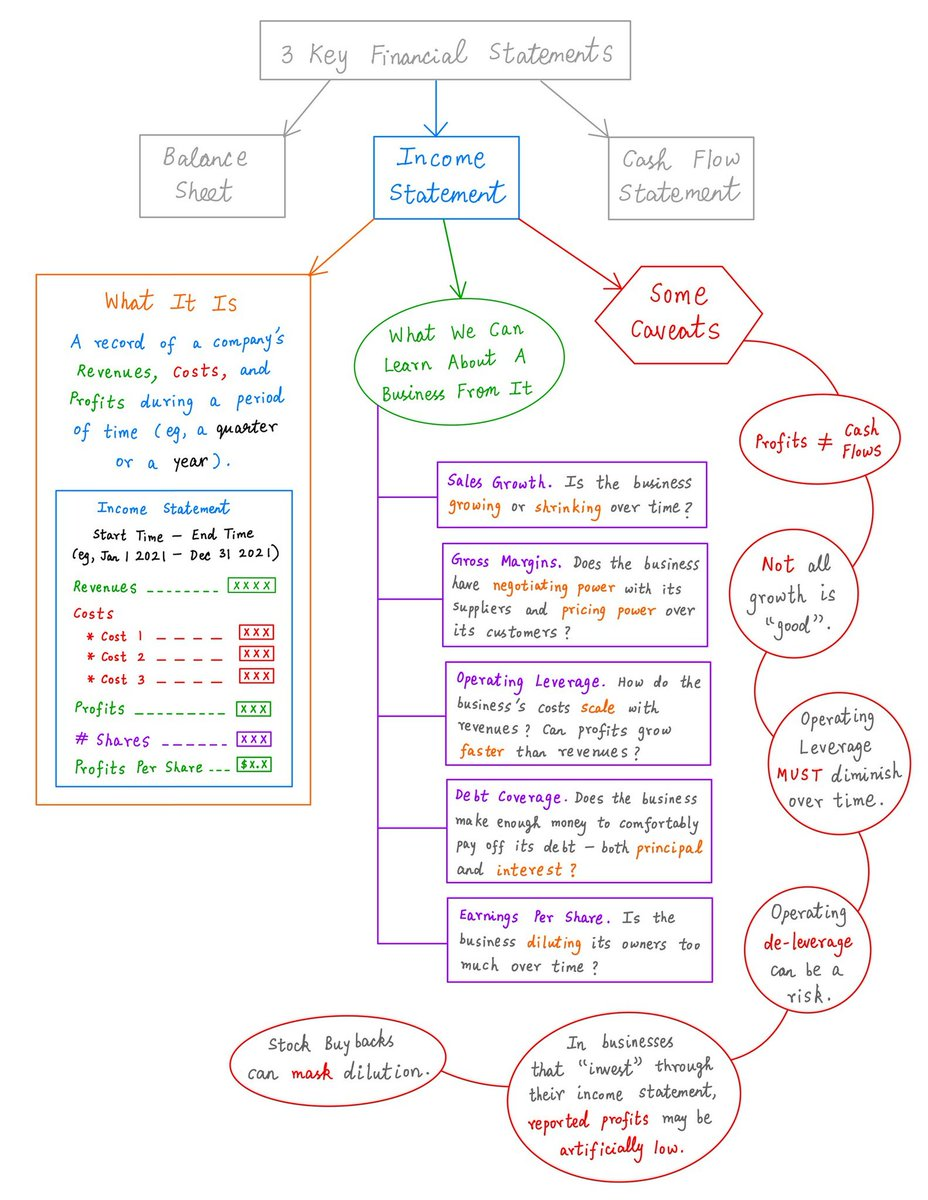 3 Key Financial Statements
Balance
Sheet
Income
Statement
Cash Flow
Statement
What It Is
A record of a company's
Revenues, Costs, and
Profits during a period
of time (eg, a quarter
or a year).
Income Statement
Start Time – End Time
(eg, Jan 1 2021 – Dec 31 2021)
Revenues -------- XXXX
Costs
* Cost 1 ---- XXX
* Cost 2 ---- XXX
* Cost 3 ---- XXX
Profits --------- XXX
# Shares ------- XXX
Profits Per Share --- $X.X
What We Can
Learn About A
Business From It
Sales Growth. Is the business
growing or shrinking over time?
Gross Margins. Does the business
have negotiating power with its
suppliers and pricing power over
its customers?
Operating Leverage. How do the
business's costs scale with
revenues? Can profits grow
faster than revenues?
Debt Coverage. Does the business
make enough money to comfortably
pay off its debt – both principal
and interest?
Earnings Per Share. Is the
business diluting its owners too
much over time?
Some
Caveats
Profits ≠ Cash
Flows
Not all
growth is
"good".
Operating
Leverage
MUST diminish
over time.
Operating
de-leverage
can be a
risk.
In businesses
that "invest" through
their income statement,
reported profits may be
artificially low.
Stock Buybacks
can mask dilution.